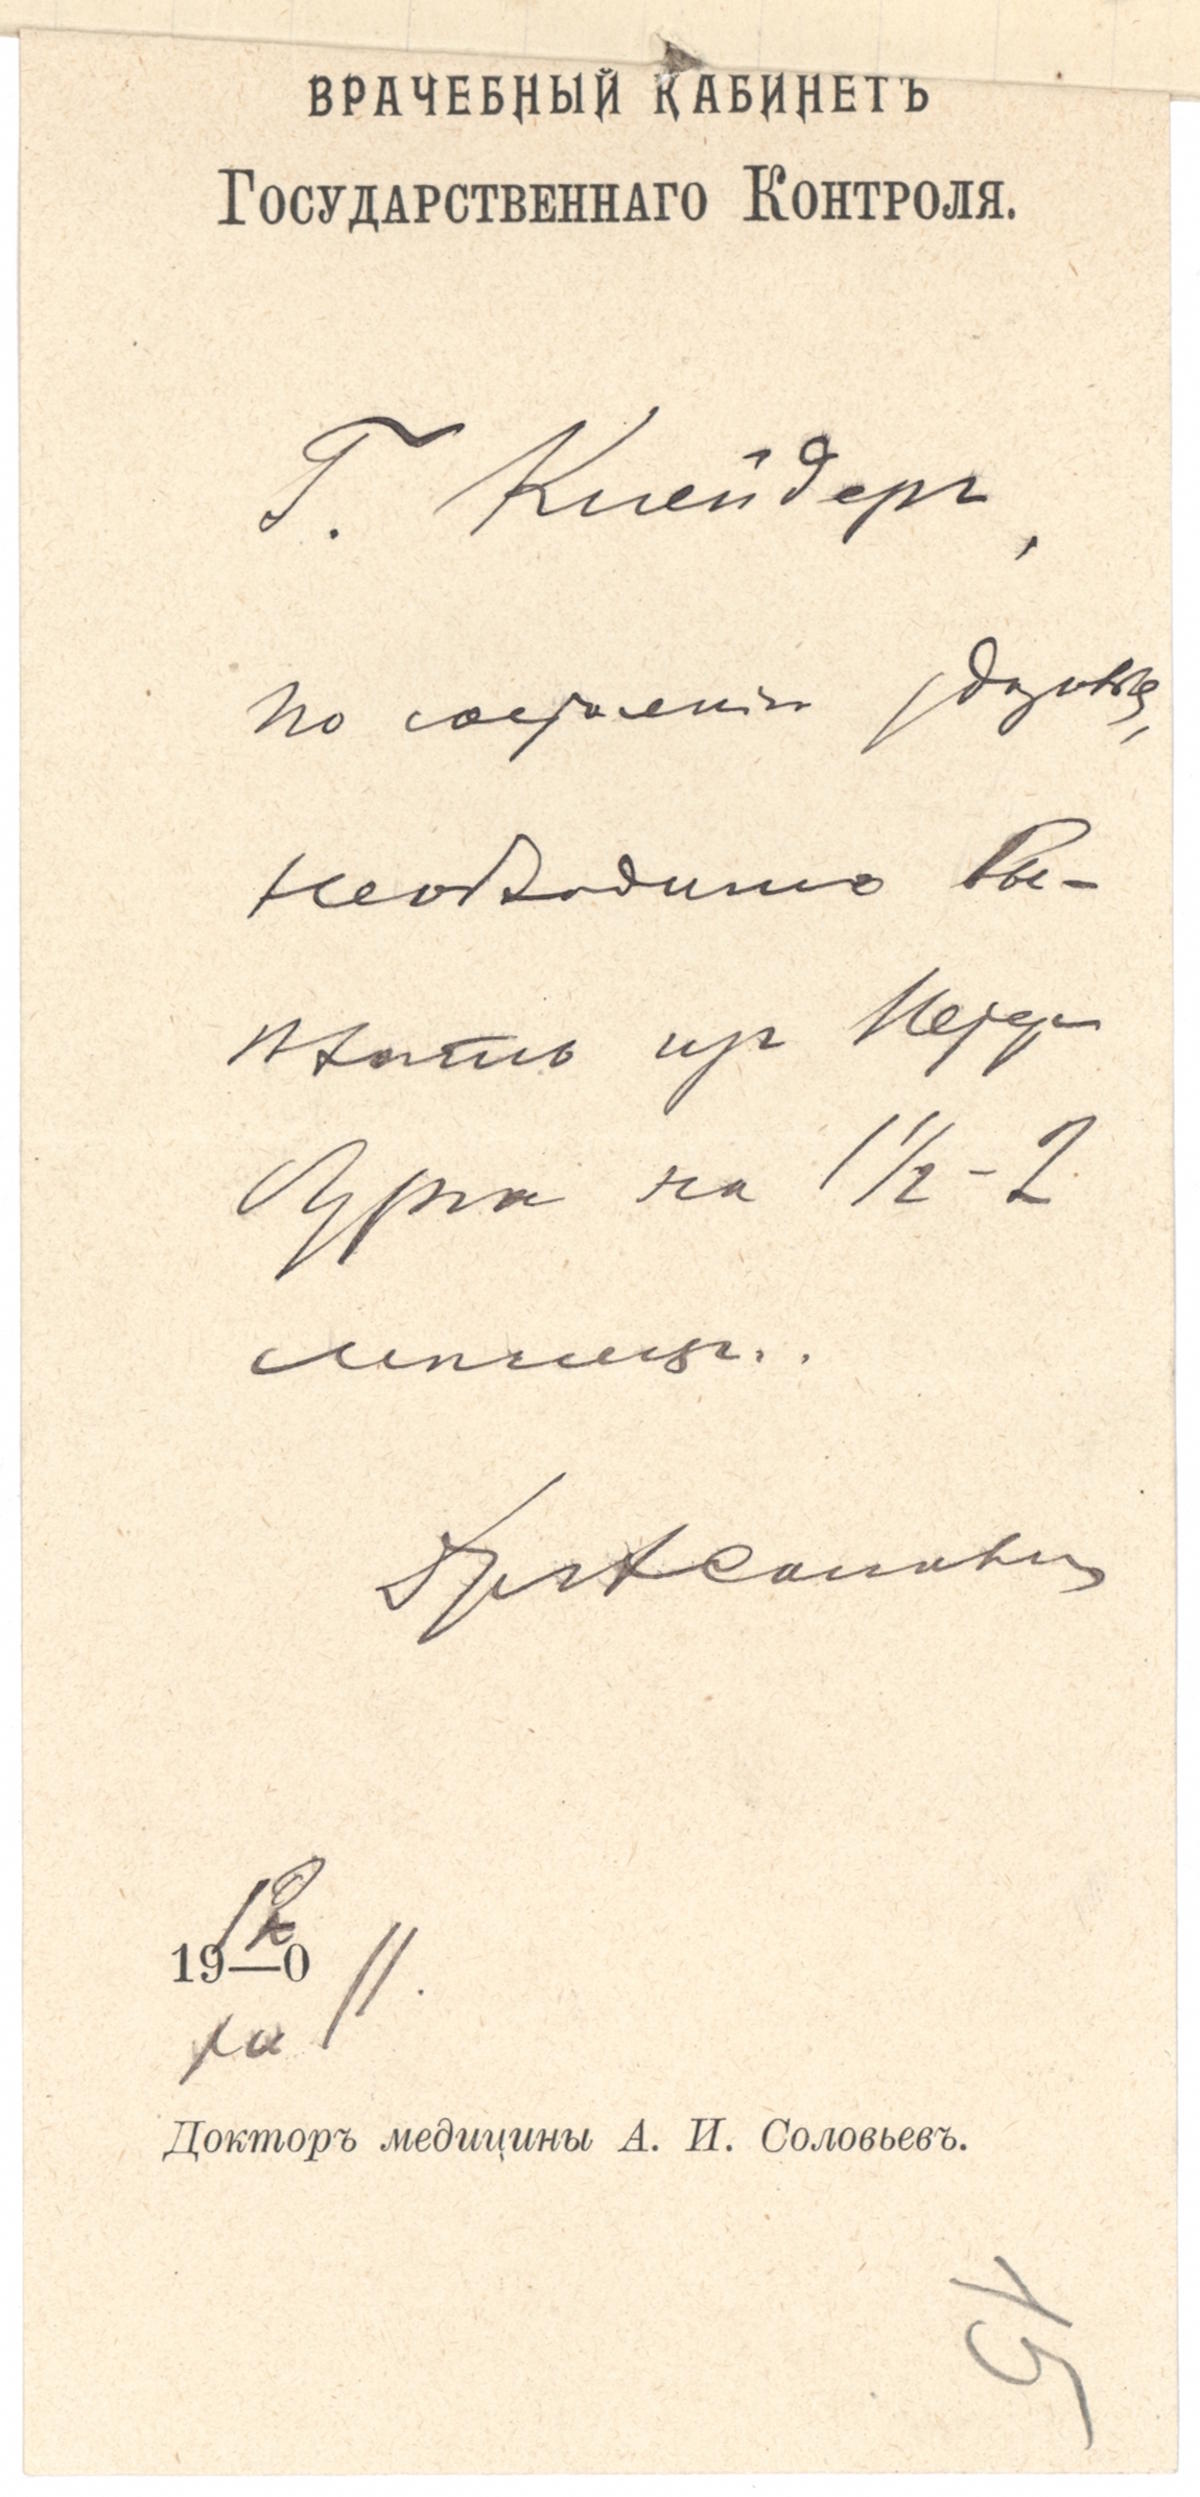 ВРАЧЕБНЫЙ КАБИНЕТЪ
ГОСУДАРСТВЕННАГО КОНТРОЛЯ.
Г.
по состоянію здоровья,
необходимо вы-
ѣхать изъ Петер
бурга на 1½-2
мѣсяца..
19—0
11.
Докторъ медицины А. И. Соловьевъ.
15